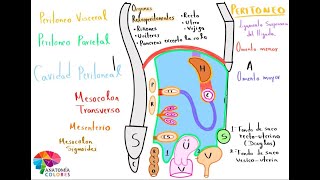 Peritoneo Visceral
Peritoneo Parietal
Cavidad Peritoneal
Mesocolon
Transverso
Mesenterio
Mesocolon
Sigmoides
ANATOMÍA
COLORES
Órganos
Retroperitoneales
•Riñones
•Uréteres
•Páncreas excepto la cola
•Recto
•Útero
•Vejiga
PERITONEO
Ligamento Suspensorio
del Hígado
Omento menor
Omento mayor
1·Fondo de saco
recto-uterino
(Douglas)
2·Fondo de saco
Vesico-uterin
S
S
H
E
P
D
R
U
V
V
A